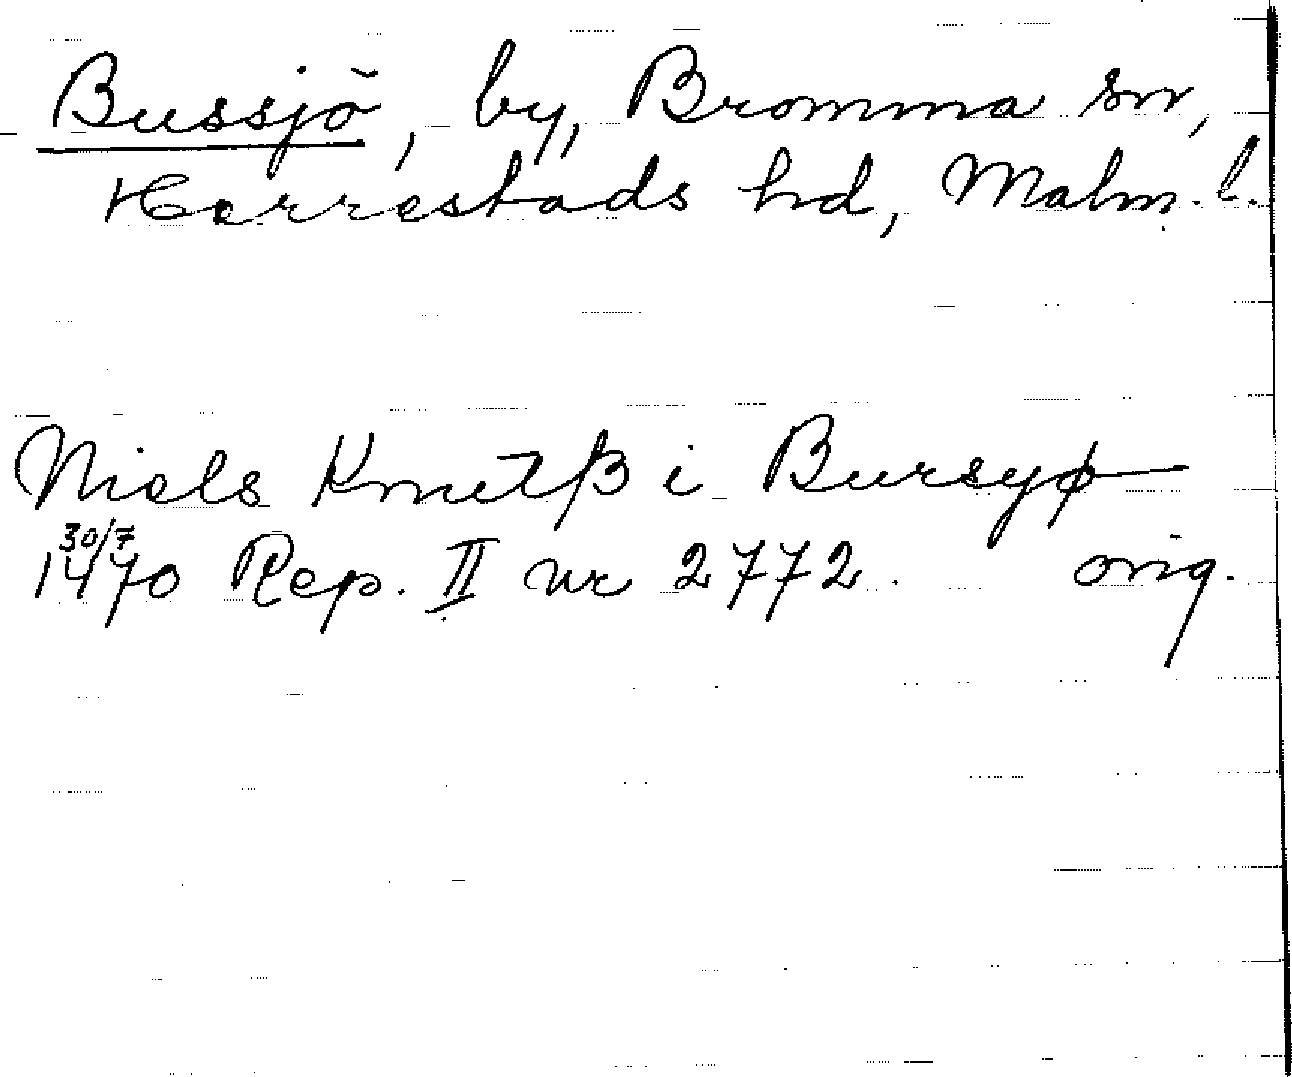 Bussjö, by, Bromma sn,
Herrestads hd, Malm. l.
Niels Knutß i Bursyø
30/7
1470 Rep. II nr 2772. orig.